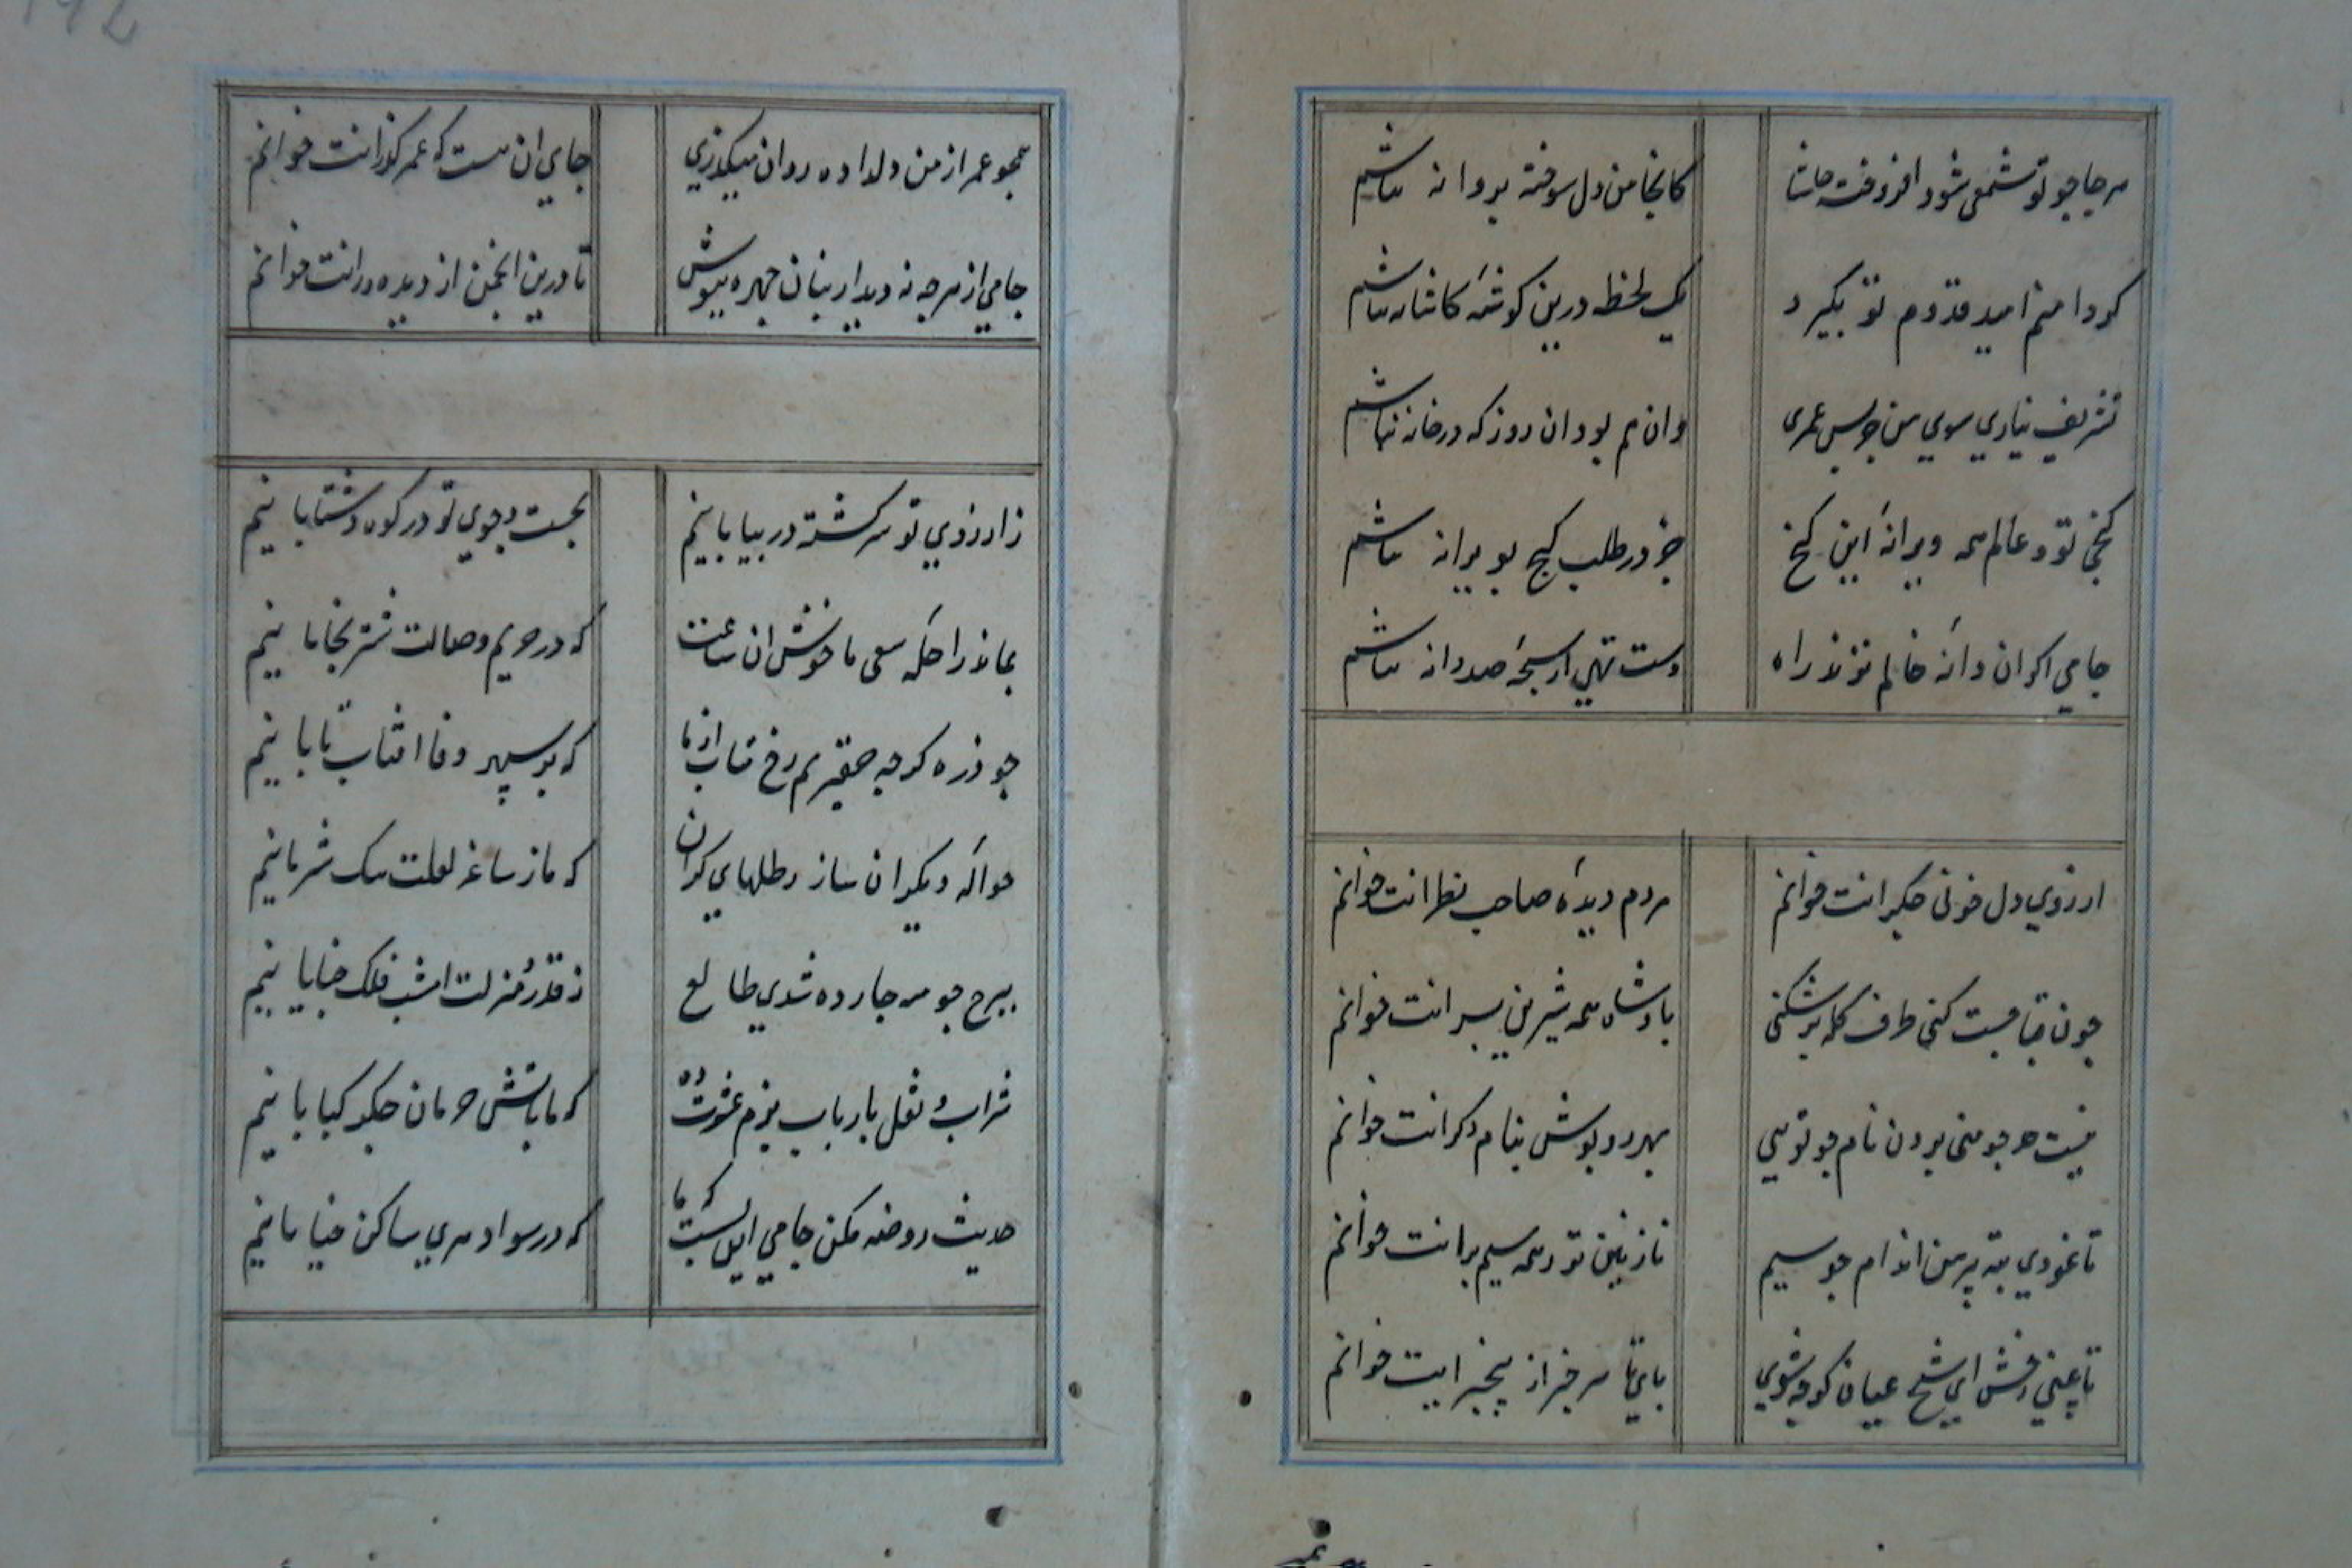 هرجا چو تو شمعی شود افروخته حاشا
کانجا من دل سوخته پروانه نباشم
گر دامنم امید قدوم تو بگیرد
یک لحظه درین گوشهٔ کاشانه نباشم
تشریف نیاری سوی من جز پس عمری
وان هم بود ان روز که در خانه نباشم
گنجی تو و عالم همه ویرانهٔ این گنج
جز در طلب گنج بویرانه نباشم
جامی اگر ان دانهٔ خالم نزند راه
دست تهی از سبحهٔ صد دانه نباشم
ارزوی دل خونی جگرانت خوانم
مردم دیدهٔ صاحب نظرانت خوانم
چون قبا چست کنی طرف کله بر شکنی
پادشاه همه شیرین پسرانت خوانم
نیست حد چو منی بردن نام چو تویی
بهر روپوش بنام دگرانت خوانم
تا نمودی بته پیرهن اندام چو سیم
نازنین تر همه سیم برانت خوانم
رخش ای شیخ عیان گرچه شوی
پای تا سر خبر از بیخبرانت خوانم
همچو عمر از من دلداده روان میگذری
جای ان هست که عمر گذرانت خوانم
جامی از هرچه نه دیدار بتان چهره بپوش
تا درین انجمن از دیده ورانت خوانم
ز ارزوی تو سرگشته در بیابانیم
بجست و جوی تو در کوه و دشت شتابانیم
بماند راحله سعی ما خوش ان ساعت
که در حریم وصالت شتر بخابانیم
چو ذره گرچه حقیریم رخ متاب از ما
که بر سپهر وفا افتاب تابانیم
حواله دیگران ساز رطلهای گران
که ما ز ساغر لعلت سبک شرابانیم
ببرج چو مه چارده شدی طالع
ز قدر و منزلت امشب فلک جنابانیم
شراب و نقل بارباب بزم عشرت ده
که ما باتش حرمان جگر کبابانیم
حدیث روضه مکن جامی این بس که ما
که در سواد هری ساکن خیابانیم